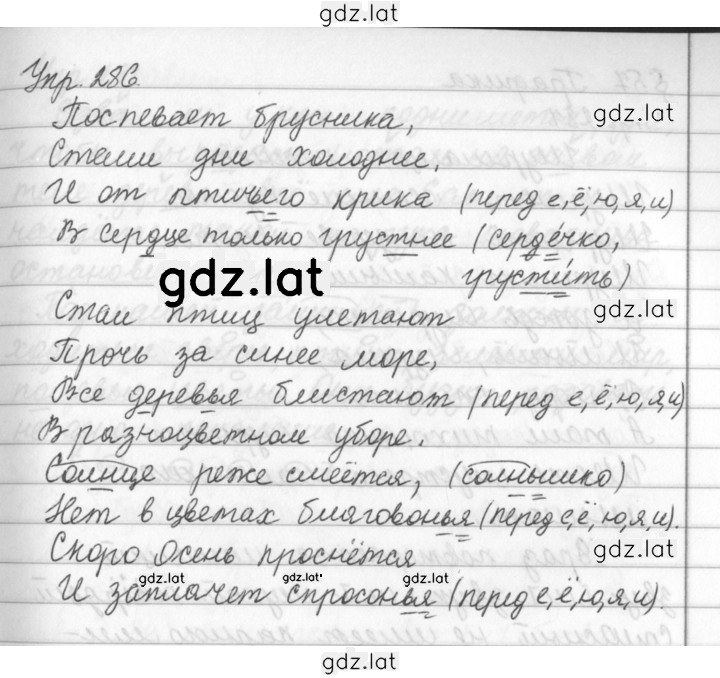 gdz.lat
Упр. 286.
Поспевает брусника,
gdz.lat
Стали дни холоднее,
И от птичьего крика (перед е, ё, ю, я, и)
В сердце только грустнее (сердечко,
грустить)
gdz.lat
Стаи птиц улетают
gdz.lat
Прочь за синее море,
Все деревья блистают (перед е, ё, ю, я, и)
В разноцветном уборе.
Солнце реже смеётся, (солнышко)
Нет в цветах благовонья (перед е, ё, ю, я, и).
Скоро Осень проснётся
gdz.lat
gdz.lat gdz.lat gdz.lat
И заплачет спросонья (перед е, ё, ю, я, и).
gdz.lat